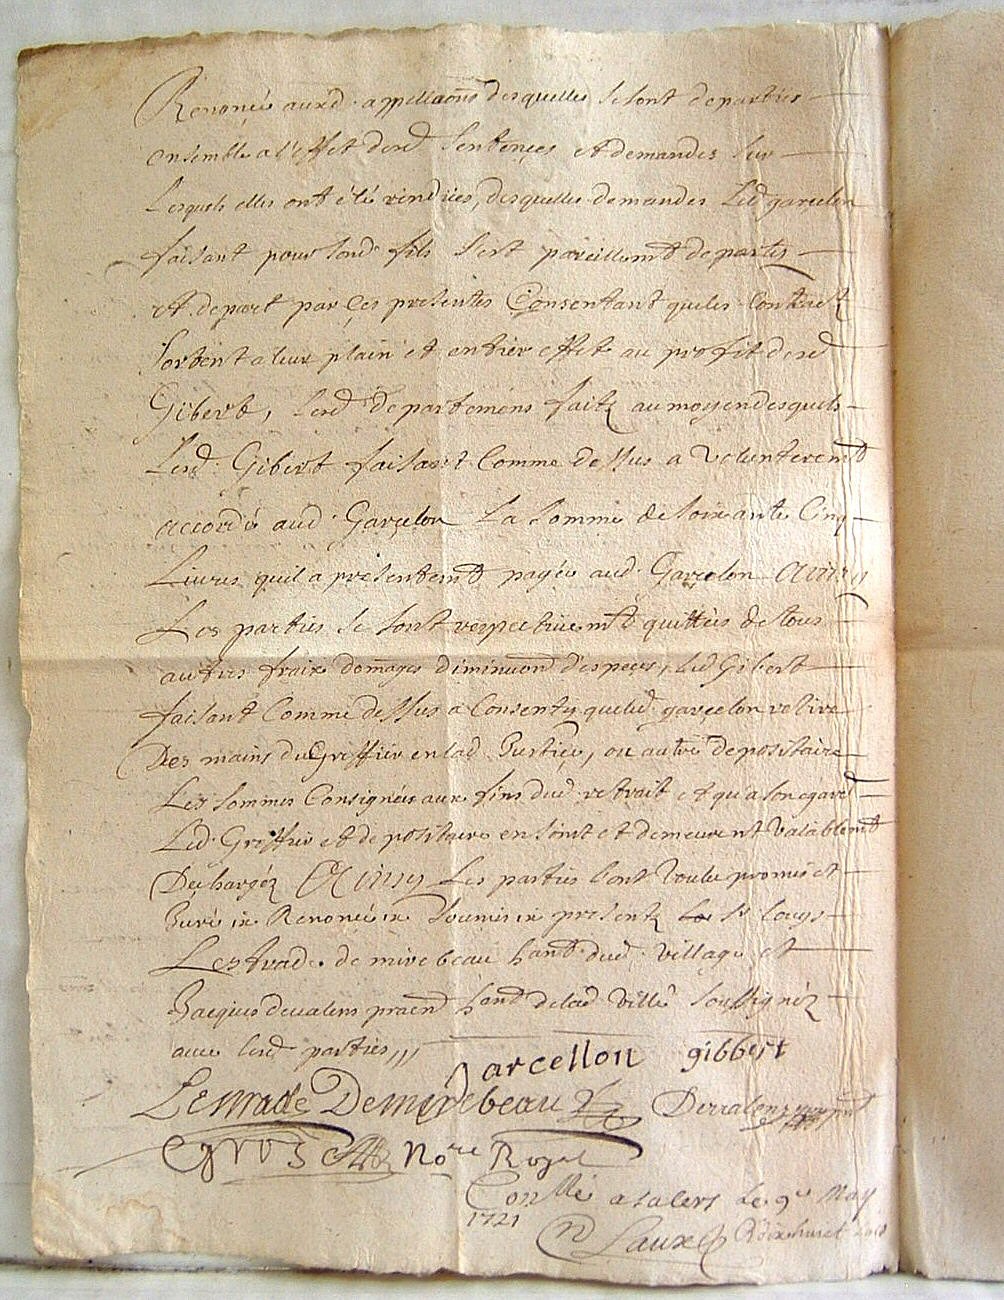 Renoncé auxd. appellaons desquelles se sont departies
ensemble a l'effet desd sentences et demandes sur
Lesquels elles ont été rendües, desquelles demandes Led garcelon
faisant pour sond fils s'est pareillemt departy
et depart par ces presentes Consentant que les Contract
sortent a leur plain et entier effet au profit desd
Gibert, Lesd departemens faitz au moyen desquels
Lesd. Gibert faisant Comme dessus a volunteremt
accordé aud. Garcelon La somme de soixante Cinq
Livres quil a presentemt payée aud. Garcelon Ainsy
Les parties se sont respectivemt quittées de tous
autres fraix domages diminuon d'especes, Led Gibert
faisant Comme dessus a Consenty que led. garcelon retire
Des mains du Greffier en lad. Justice, ou autre depositaire
Les sommes Consignées aux fins dud. retrait et qu'a son egard
Led. Greffier et depositaire en soint et demeurent valablemt
Dechargéz Ainsy Les parties l'ont voulu promis et
Juré &c Renoncé &c soumis &c presentz Le sr Louys
Lestrade de mirebeau hant dud. village et
Jacques devalens praen hant de lad ville soussignéz
avec lesd parties
garcellon gibbert
Lestrade De mirebeau Devalens
Gros Nore Royal
Conllé a salers Le 9e May
1721